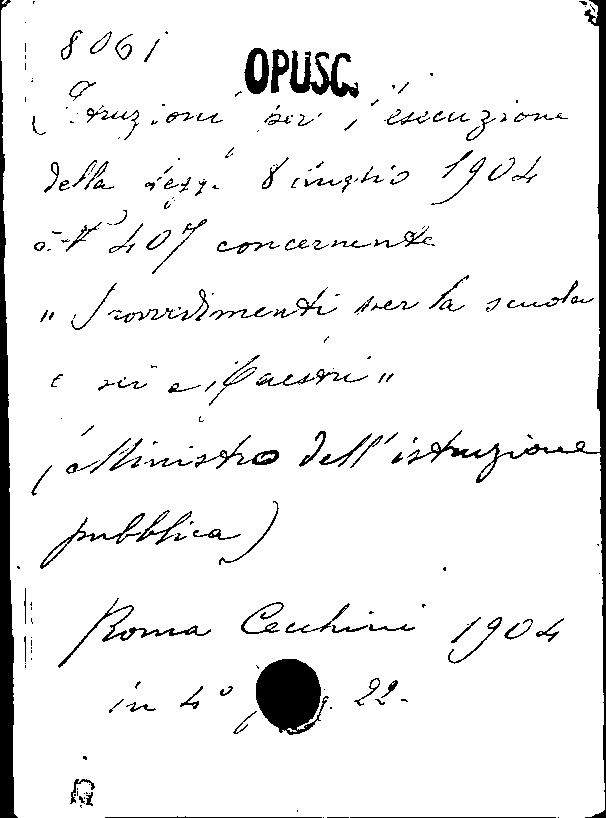 8061
OPUSC.
Istruzioni per l'esecuzione
della legge 8 luglio 1904
n. 407 concernente
"Provvedimenti per la scuola
e per i Maestri"
(Ministro dell'istruzione
pubblica)
Roma Cecchini 1904
in 4° pag. 22.